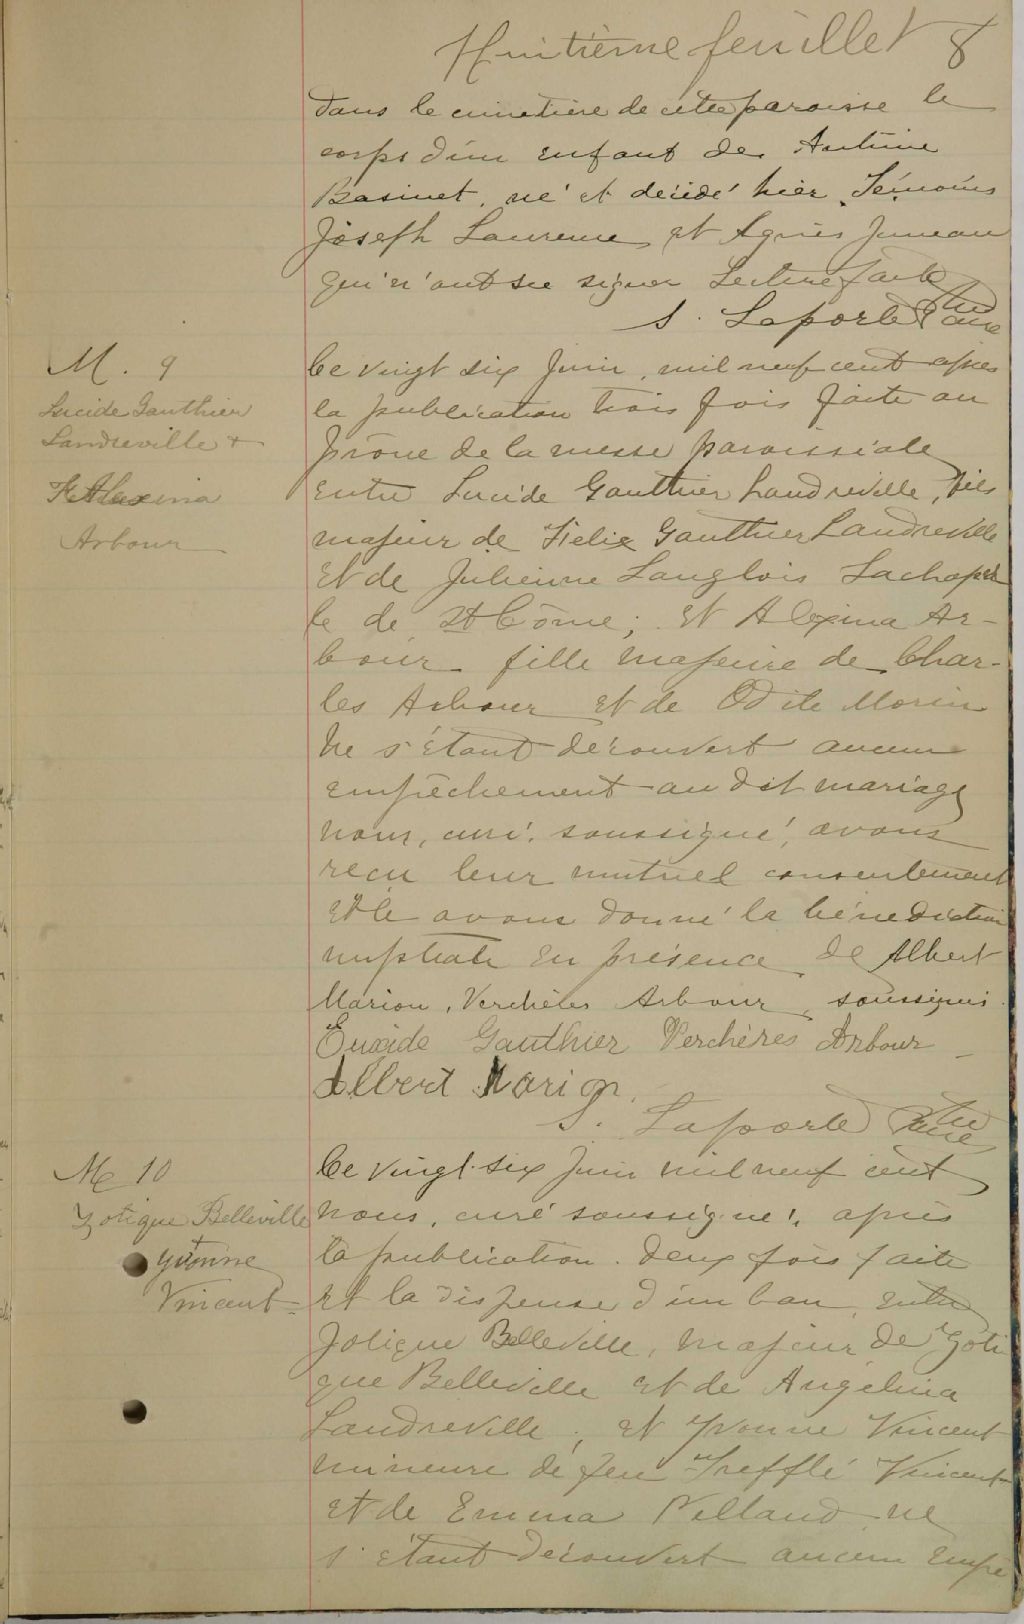 Huitième feuillet 8
dans le cimetière de cette paroisse le
corps d'un enfant de Antoine
Basinet, né et décédé hier. Témoins
Joseph Laurence et Agnès Juneau
qui n'ont su signer Lecture faite
S. Laporte Ptre Curé
M. 9
Lucide Gauthier
Landreville +
Alexina
Arbour
Ce vingt six Juin, mil neuf cent après
la publication trois fois faite au
prône de la messe paroissiale
entre Lucide Gauthier Landreville, fils
majeur de Félix Gauthier Landreville
et de Julienne Langlois Lachapel
le de St Côme; et Alexina Ar-
bour fille majeure de Char-
les Arbour et de Odile Morin
Ne s'étant découvert aucun
empêchement au dit mariage
nous, curé, soussigné, avons
reçu leur mutuel consentement
et le avons donné la bénédiction
nuptiale en présence de Albert
Marion, Verchères Arbour, soussignés.
Euxide Gauthier Verchères Arbour
Albert Marion.
S. Laporte Ptre Curé
M 10
Zotique Belleville
+
Yvonne
Vincent
Ce vingt-six Juin mil neuf cent
nous, curé soussigné, après
la publication deux fois faite
et la dispense d'un ban, entre
Zotique Belleville, majeur de Zoti
que Belleville et de Angélina
Landreville, et Yvonne Vincent
mineure de feu Trefflé Vincent
et de Emma Pelland ne
s'étant découvert aucun empê